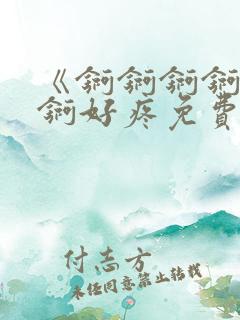 《锕锕锕锕
锕好疼免费
付志方
未经同意禁止转载